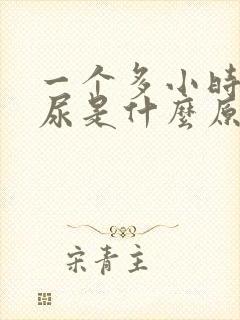 一个多小时
尿是什麼原
宋青主